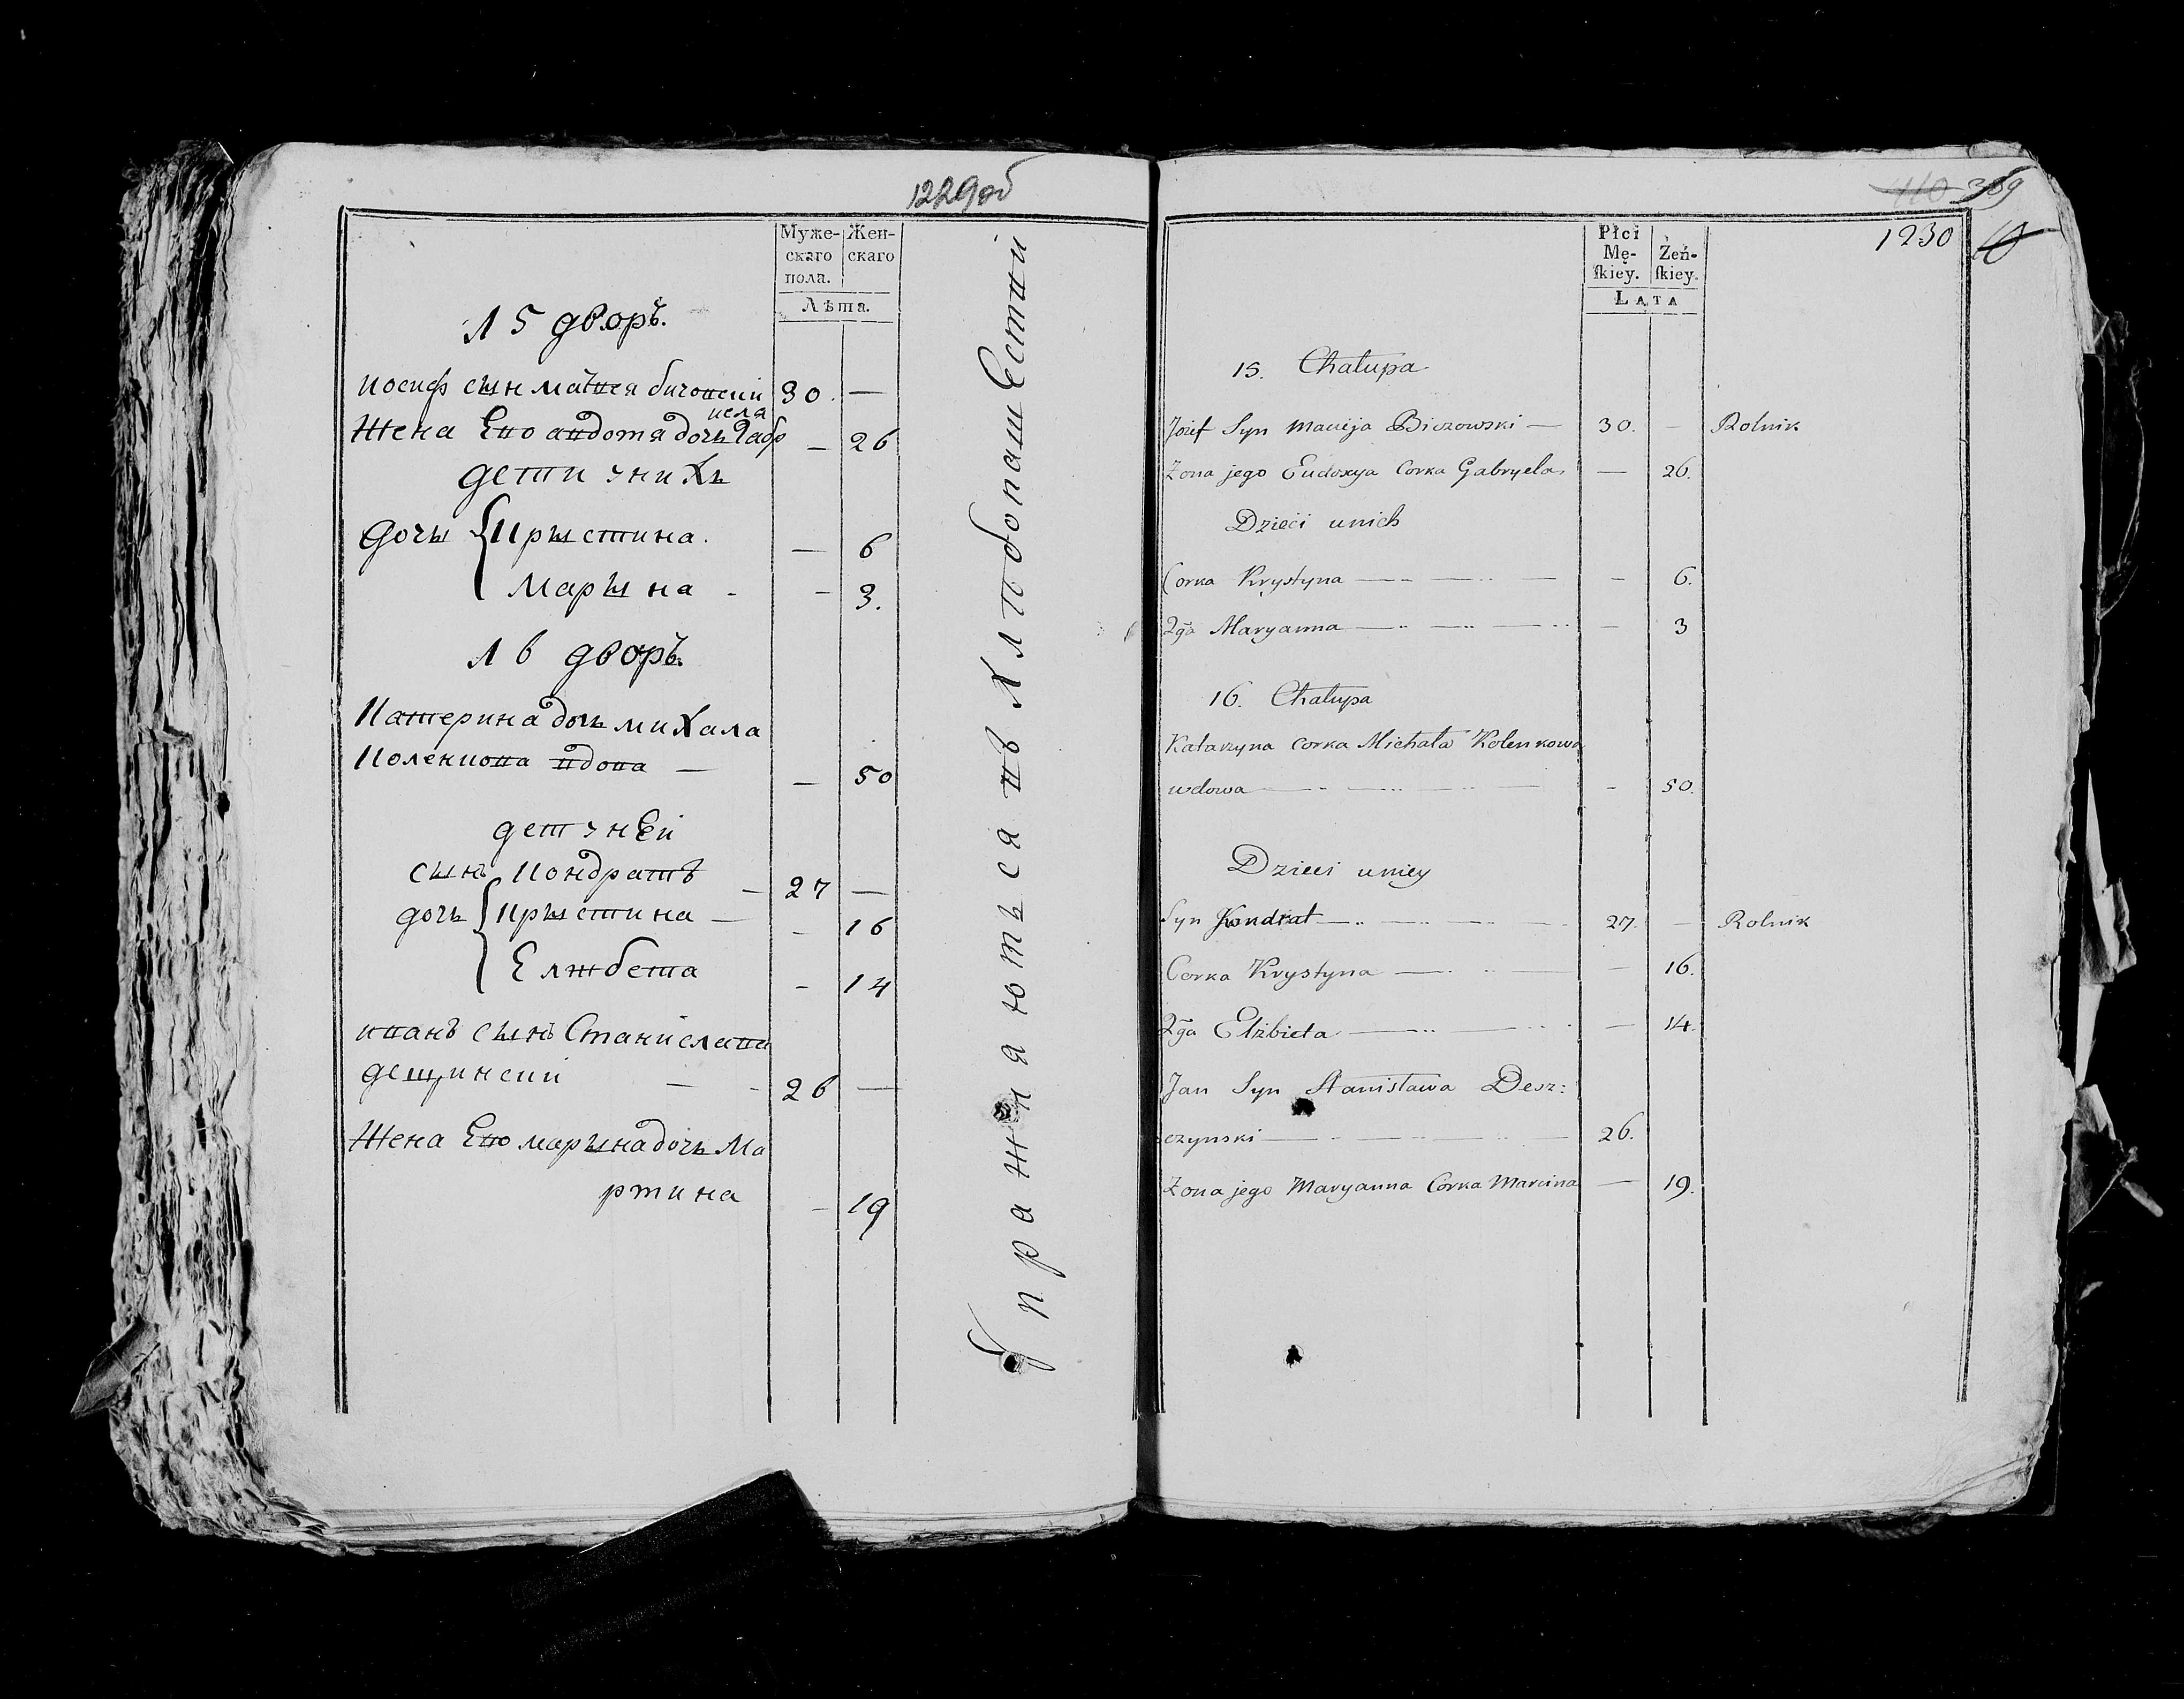 1229об
Муже-
скаго
пола.
Жен-
скаго
Лѣта.
15 дворъ.
иосиф сын матвея бичовский 30. —
Жена Его авдотя дочь Габр
иеля — 26
дети у них
дочы Крыстина. — 6
Марына - — 3.
16 дворъ.
Катерина дочь михала
Коленкова вдова — — 50
дет у нЕй
сынъ Кондратъ — 27 —
дочь Крыстина — — 16
Елжбета — 14
иванъ сынъ Станислава
дещинский — - 26 —
Жена Его марына дочь Ма
ртина - 19
Упражняютъся въ Хлѣбопашествѣ
410 389
1230
Płci
Mę-
skiey.
Żeń-
skiey.
LATA
15. Chałupa
Jozef Syn Macieja Biczowski — 30. — Rolnik
Zona jego Eudoxya Corka Gabryela. — 26.
Dzieci unich
Corka Krystyna — - 6.
2ga Maryanna — - 3
16. Chałupa
Katarzyna corka Michała Kolenkowa
wdowa — - 50.
Dzieci uniey
Syn Kondrat — 27. — Rolnik
Corka Krystyna — — 16.
2ga Elżbieta — — 14.
Jan Syn Stanisława Desz:
czynski — 26.
Zona jego Maryanna Corka Marcina — 19.